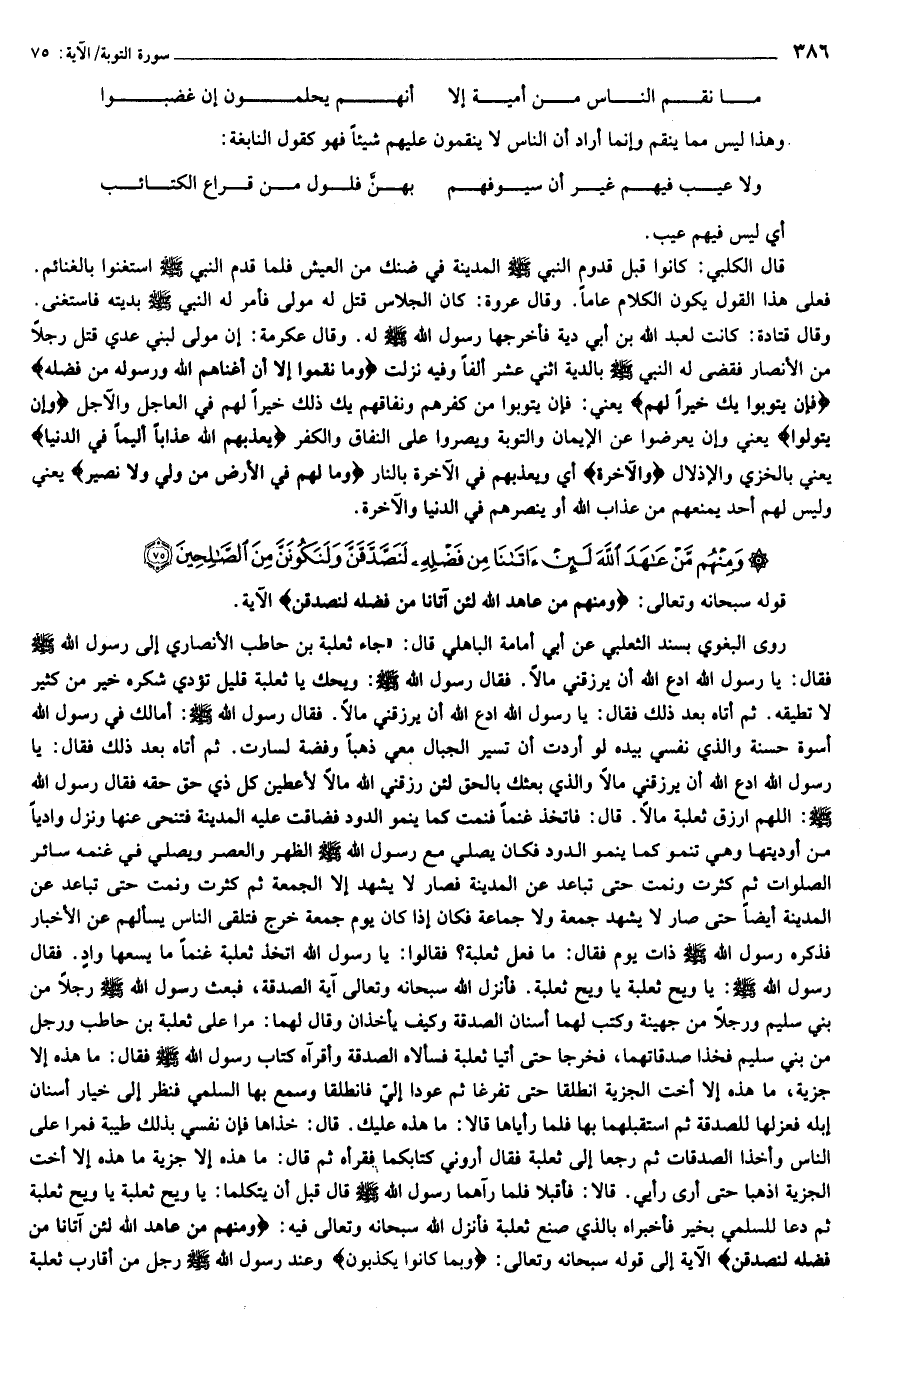 ٣٨٦ سورة التوبة/الآية: ٧٥
مـا نقـم النـاس مـن أميـة إلا أنهـم يحلمـون إن غضبـوا
وهذا ليس مما ينقم وإنما أراد أن الناس لا ينقمون عليهم شيئاً فهو كقول النابغة:
ولا عيـب فيهـم غيـر أن سيـوفهـم بهـنَّ فلـول مـن قـراع الكتـائـب
أي ليس فيهم عيب.
قال الكلبي: كانوا قبل قدوم النبي ﷺ المدينة في ضنك من العيش فلما قدم النبي ﷺ استغنوا بالغنائم.
فعلى هذا القول يكون الكلام عاماً. وقال عروة: كان الجلاس قتل له مولى فأمر له النبي ﷺ بديته فاستغنى.
وقال قتادة: كانت لعبد الله بن أبي دية فأخرجها رسول الله ﷺ له. وقال عكرمة: إن مولى لبني عدي قتل رجلاً
من الأنصار فقضى له النبي ﷺ بالدية اثني عشر ألفاً وفيه نزلت ﴿وما نقموا إلا أن أغناهم الله ورسوله من فضله﴾
﴿فإن يتوبوا يك خيراً لهم﴾ يعني: فإن يتوبوا من كفرهم ونفاقهم يك ذلك خيراً لهم في العاجل والآجل ﴿وإن
يتولوا﴾ يعني وإن يعرضوا عن الإيمان والتوبة ويصروا على النفاق والكفر ﴿يعذبهم الله عذاباً أليماً في الدنيا﴾
يعني بالخزي والإذلال ﴿والآخرة﴾ أي ويعذبهم في الآخرة بالنار ﴿وما لهم في الأرض من ولي ولا نصير﴾ يعني
وليس لهم أحد يمنعهم من عذاب الله أو ينصرهم في الدنيا والآخرة.
۞ وَمِنْهُم مَّنْ عَٰهَدَ ٱللَّهَ لَئِنْ ءَاتَىٰنَا مِن فَضْلِهِۦ لَنَصَّدَّقَنَّ وَلَنَكُونَنَّ مِنَ ٱلصَّٰلِحِينَ ٧٥
قوله سبحانه وتعالى: ﴿ومنهم من عاهد الله لئن آتانا من فضله لنصدقن﴾ الآية.
روى البغوي بسند الثعلبي عن أبي أمامة الباهلي قال: «جاء ثعلبة بن حاطب الأنصاري إلى رسول الله ﷺ
فقال: يا رسول الله ادع الله أن يرزقني مالاً. فقال رسول الله ﷺ: ويحك يا ثعلبة قليل تؤدي شكره خير من كثير
لا تطيقه. ثم أتاه بعد ذلك فقال: يا رسول الله ادع الله أن يرزقني مالاً. فقال رسول الله ﷺ: أمالك في رسول الله
أسوة حسنة والذي نفسي بيده لو أردت أن تسير الجبال معي ذهباً وفضة لسارت. ثم أتاه بعد ذلك فقال: يا
رسول الله ادع الله أن يرزقني مالاً والذي بعثك بالحق لئن رزقني الله مالاً لأعطين كل ذي حق حقه فقال رسول الله
ﷺ: اللهم ارزق ثعلبة مالاً. قال: فاتخذ غنماً فنمت كما ينمو الدود فضاقت عليه المدينة فتنحى عنها ونزل وادياً
من أوديتها وهي تنمو كما ينمو الدود فكان يصلي مع رسول الله ﷺ الظهر والعصر ويصلي في غنمه سائر
الصلوات ثم كثرت ونمت حتى تباعد عن المدينة فصار لا يشهد إلا الجمعة ثم كثرت ونمت حتى تباعد عن
المدينة أيضاً حتى صار لا يشهد جمعة ولا جماعة فكان إذا كان يوم جمعة خرج فتلقى الناس يسألهم عن الأخبار
فذكره رسول الله ﷺ ذات يوم فقال: ما فعل ثعلبة؟ فقالوا: يا رسول الله اتخذ ثعلبة غنماً ما يسعها وادٍ. فقال
رسول الله ﷺ: يا ويح ثعلبة يا ويح ثعلبة. فأنزل الله سبحانه وتعالى آية الصدقة، فبعث رسول الله ﷺ رجلاً من
بني سليم ورجلاً من جهينة وكتب لهما أسنان الصدقة وكيف يأخذان وقال لهما: مرا على ثعلبة بن حاطب ورجل
من بني سليم فخذا صدقاتهما، فخرجا حتى أتيا ثعلبة فسألاه الصدقة وأقرآه كتاب رسول الله ﷺ فقال: ما هذه إلا
جزية، ما هذه إلا أخت الجزية انطلقا حتى تفرغا ثم عودا إليّ فانطلقا وسمع بها السلمي فنظر إلى خيار أسنان
إبله فعزلها للصدقة ثم استقبلهما بها فلما رأياها قالا: ما هذه عليك. قال: خذاها فإن نفسي بذلك طيبة فمرا على
الناس وأخذا الصدقات ثم رجعا إلى ثعلبة فقال أروني كتابكما فقرأه ثم قال: ما هذه إلا جزية ما هذه إلا أخت
الجزية اذهبا حتى أرى رأيي. قالا: فأقبلا فلما رآهما رسول الله ﷺ قال قبل أن يتكلما: يا ويح ثعلبة يا ويح ثعلبة
ثم دعا للسلمي بخير فأخبراه بالذي صنع ثعلبة فأنزل الله سبحانه وتعالى فيه: ﴿ومنهم من عاهد الله لئن آتانا من
فضله لنصدقن﴾ الآية إلى قوله سبحانه وتعالى: ﴿وبما كانوا يكذبون﴾ وعند رسول الله ﷺ رجل من أقارب ثعلبة